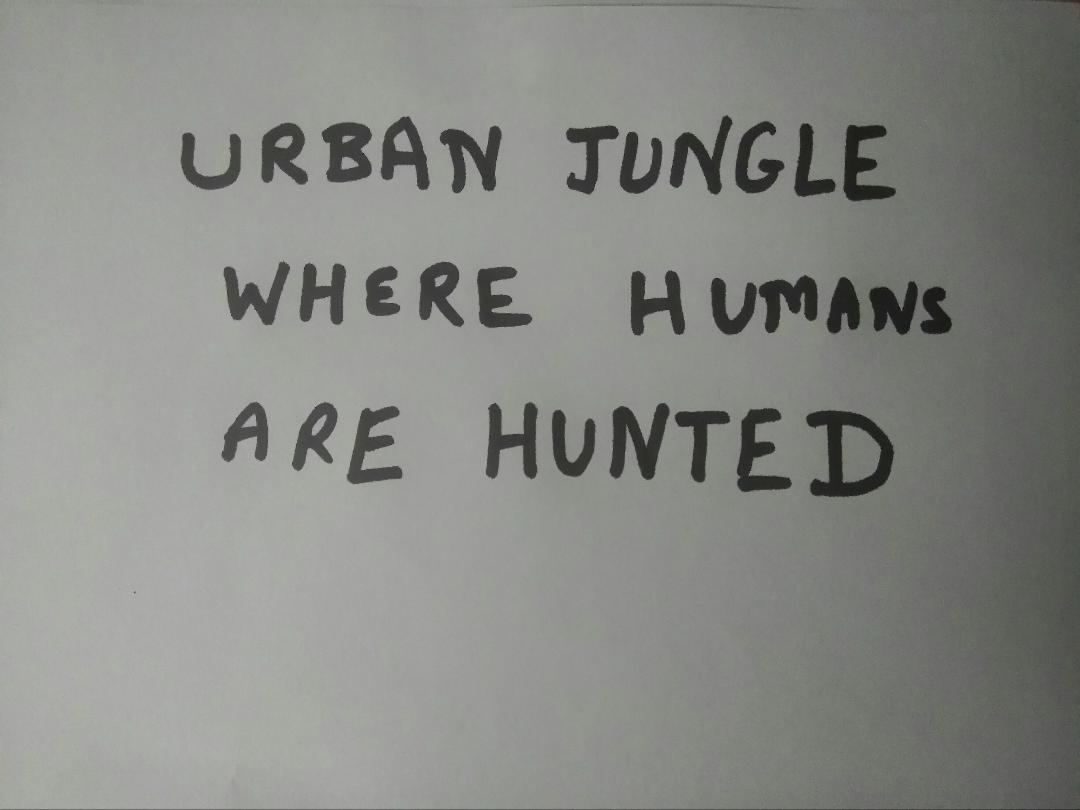 URBAN JUNGLE
WHERE HUMANS
ARE HUNTED